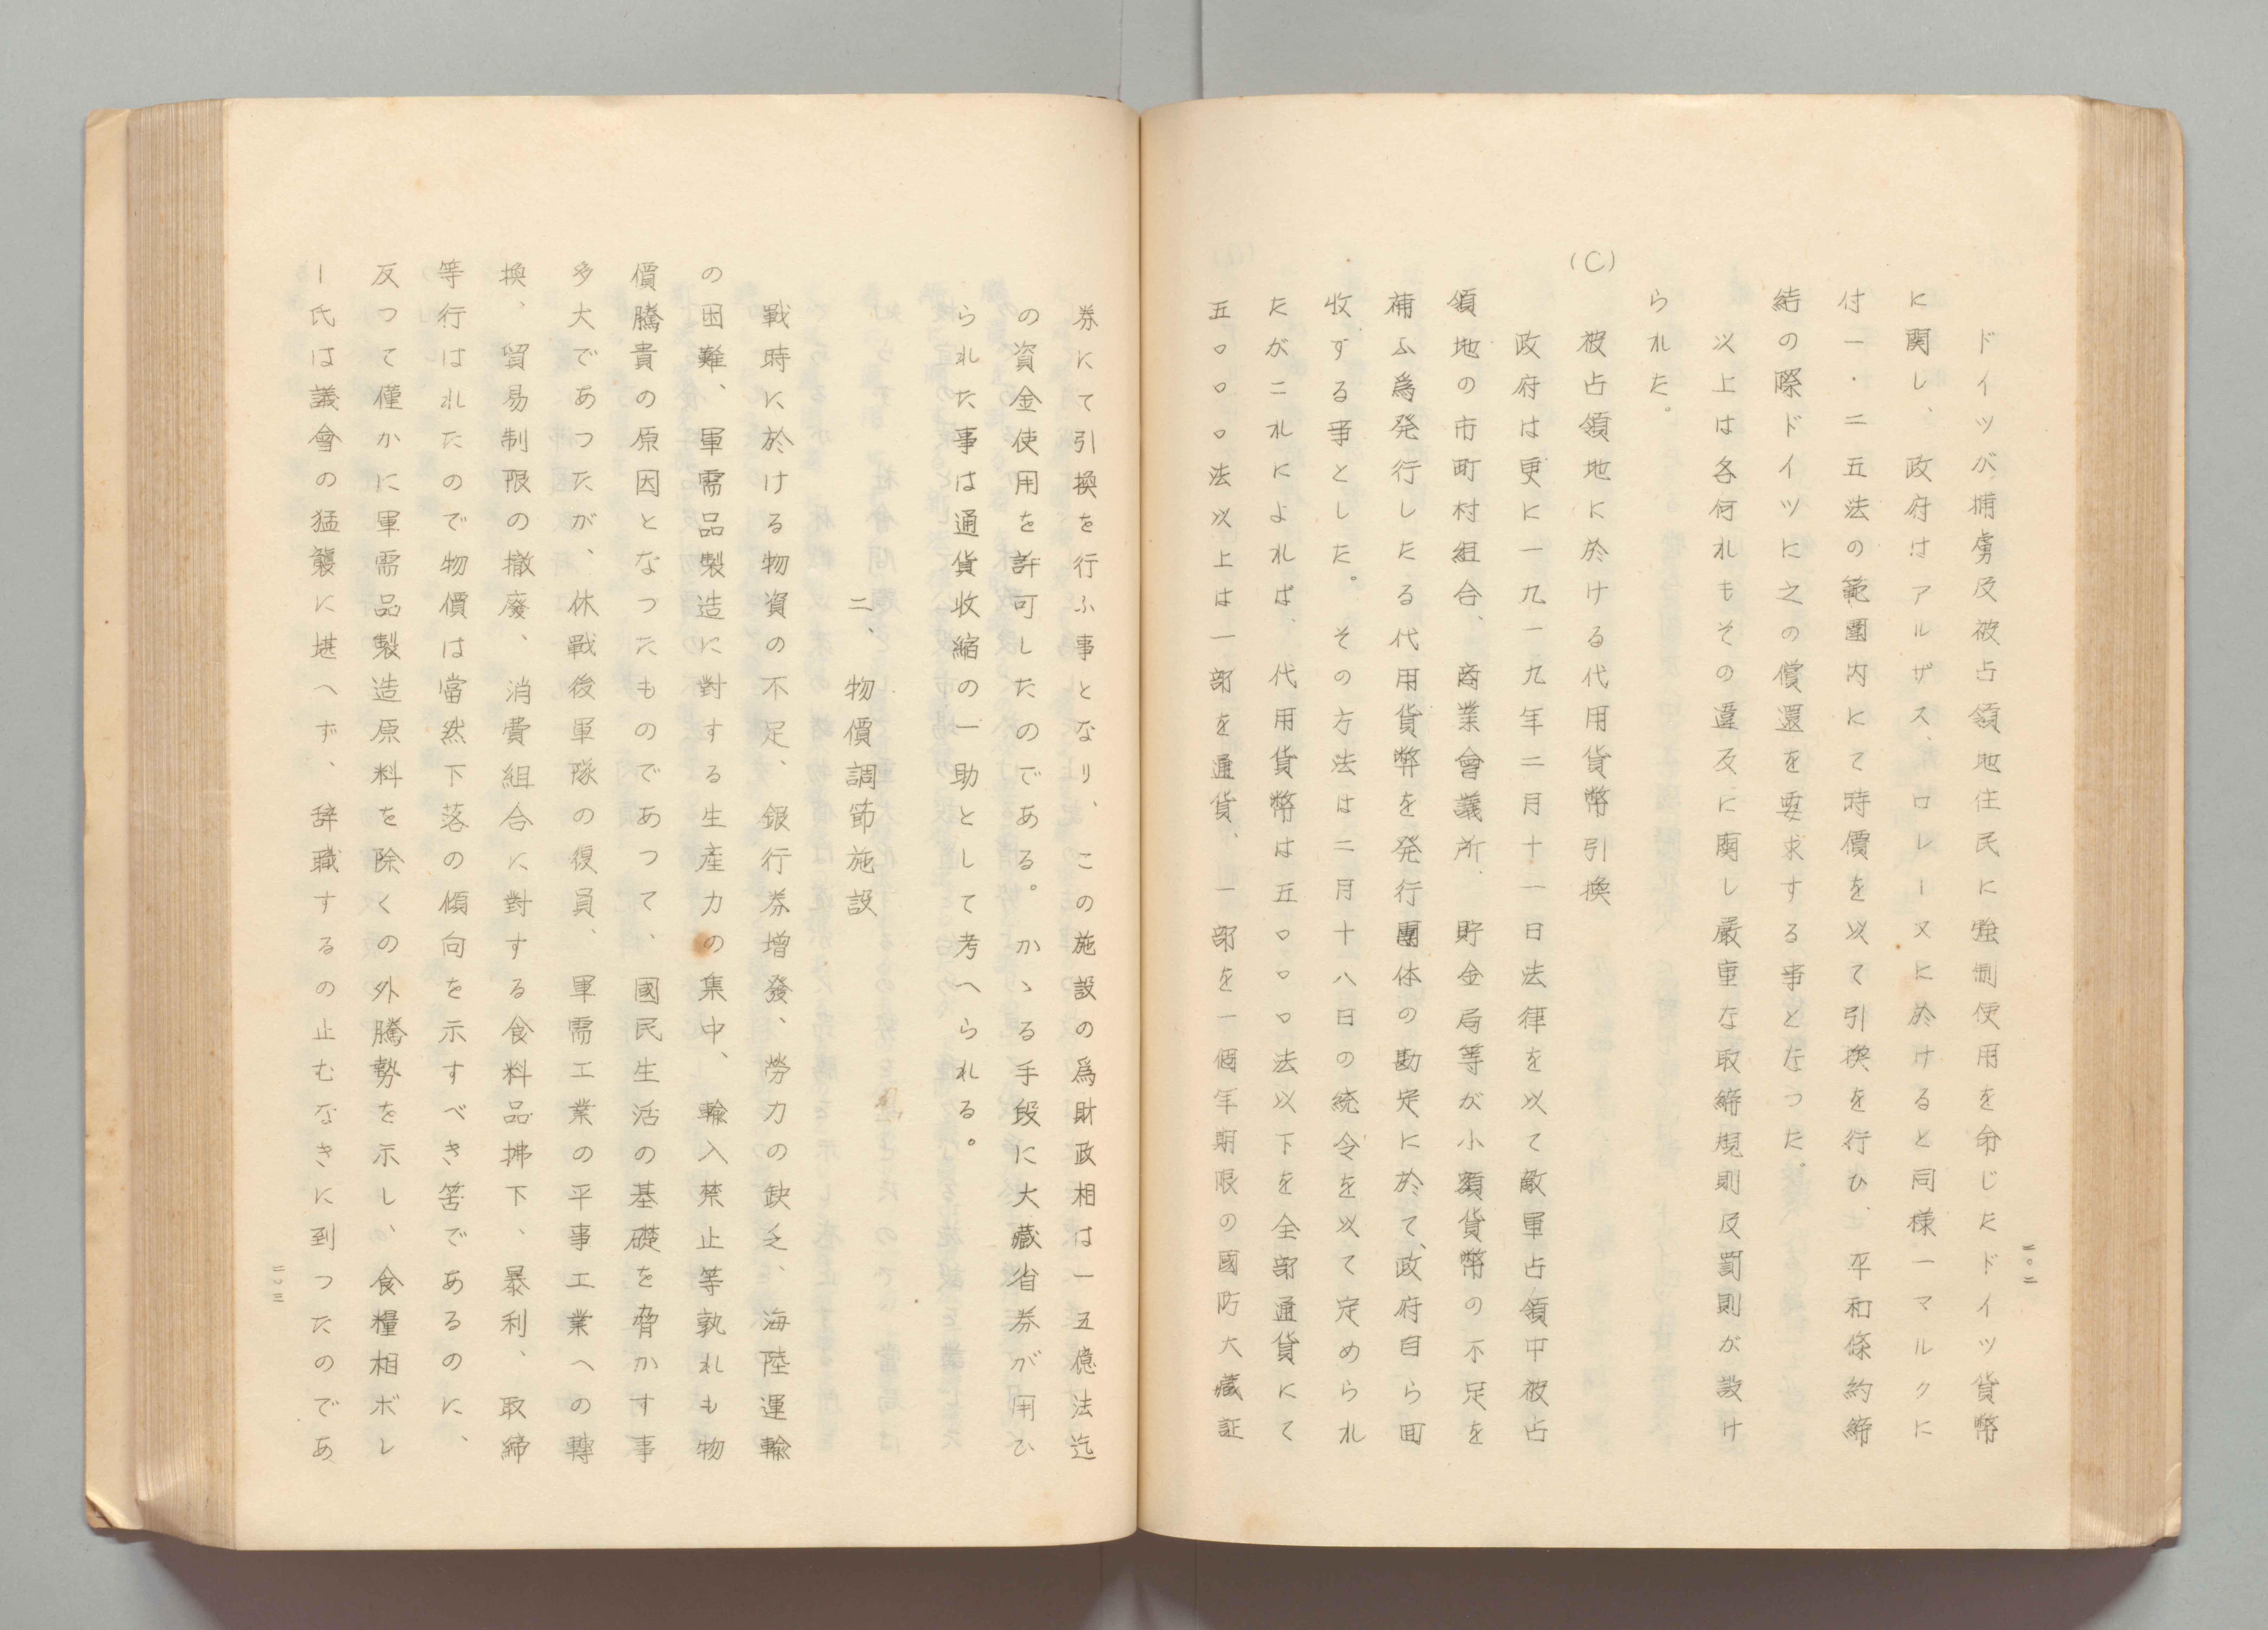 二〇二
ドイツが捕虜及被占領地住民に強制使用を命じたドイツ貨幣
に関し、政府はアルザス、ロレーヌに於けると同様一マルクに
付一・二五法の範圍内にて時價を以て引換を行ひ、平和條約締
結の際ドイツに之の償還を要求する事となつた。
以上は各何れもその違反に関し嚴重な取締規則及罰則が設け
られた。
(C)
被占領地に於ける代用貨幣引換
政府は更に一九一九年二月十一日法律を以て敵軍占領中被占
領地の市町村組合、商業會議所、貯金局等が小額貨幣の不足を
補ふ爲発行したる代用貨幣を発行團体の勘定に於て、政府自ら回
收する事とした。その方法は二月十八日の統令を以て定められ
たがこれによれば、代用貨幣は五〇〇〇法以下を全部通貨にて
五〇〇〇法以上は一部を通貨、一部を一個年期限の國防大藏証
券にて引換を行ふ事となり、この施設の爲財政相は一五億法迄
の資金使用を許可したのである。かゝる手段に大藏省券が用ひ
られた事は通貨收縮の一助として考へられる。
二、物價調節施設
戰時に於ける物資の不足、銀行券増發、勞力の缺乏、海陸運輸
の困難、軍需品製造に對する生産力の集中、輸入禁止等孰れも物
價騰貴の原因となつたものであつて、國民生活の基礎を脅かす事
多大であつたが、休戰後軍隊の復員、軍需工業の平事工業への轉
換、貿易制限の撤廢、消費組合に對する食料品拂下、暴利、取締
等行はれたので物價は當然下落の傾向を示すべき筈であるのに、
反つて僅かに軍需品製造原料を除くの外騰勢を示し、食糧相ボレ
ー氏は議會の猛襲に堪へず、辞職するの止むなきに到つたのであ
二〇三